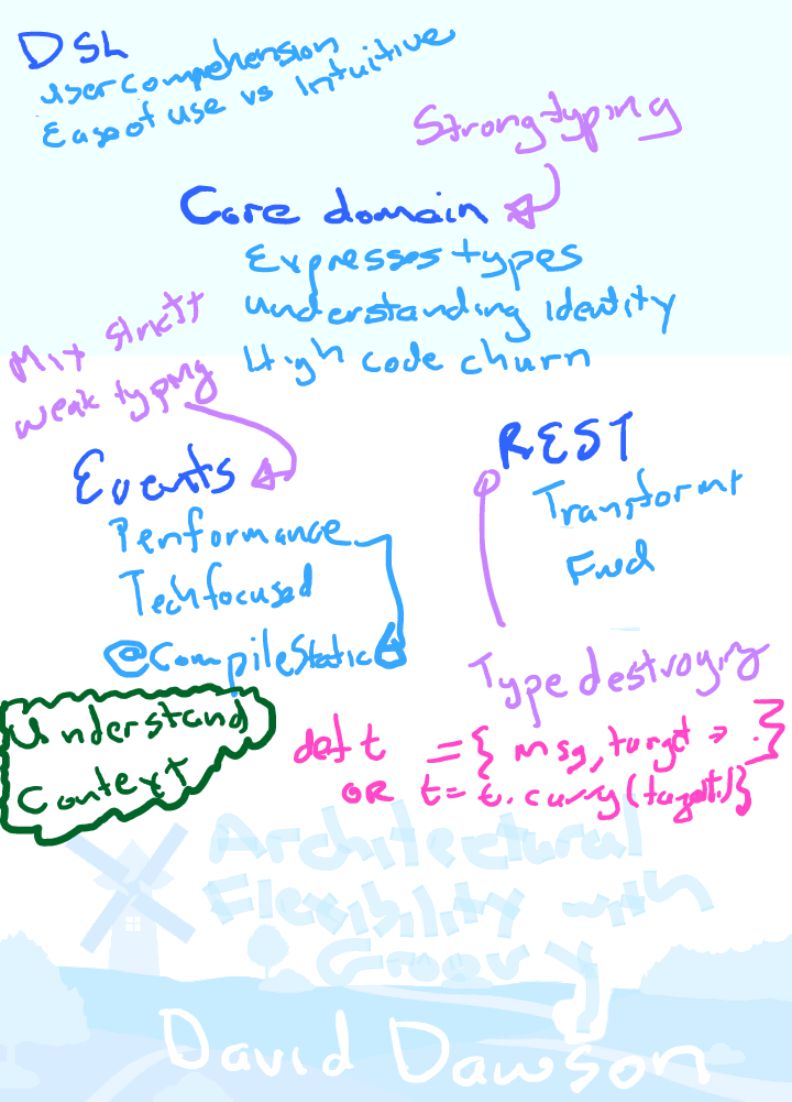 DSL
user comprehension
Ease of use vs Intuitive
Strong typing
Core domain
Expresses types
understanding identity
High code churn
Mix strict
weak typing
Events
Performance
Tech focused
@CompileStatic
REST
Transform
Fwd
Type destroying
Understand
Context
def t = { msg, target ->
OR t = t.curry(target)}
Architectural
Flexibility with
Groovy
David Dawson